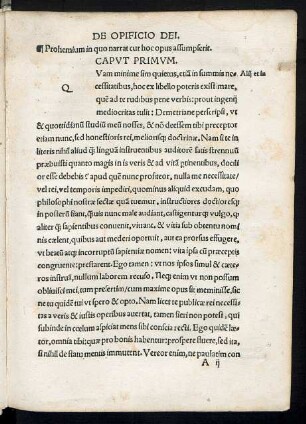 DE OPIFICIO DEI.
¶ Prohemium in quo narrat cur hoc opus assumpserit.
CAPVT PRIMVM.
Vam minime sim quietus, etiā in summis ne Alij et in
Q cessitatibus, hoc ex libello poteris existimare,
quē ad te rudibus pene verbis: prout ingenij
mediocritas tulit: Demetriane perscripsi, vt
& quotidianū studiū meū nosses, & nō deessem tibi preceptor
etiam nunc, sed honestioris rei, meliorisq; doctrinæ. Nam si te in
literis nihil aliud q̄ linguā instruentibus auditorē satis strennuū
præbuisti: quanto magis in is veris & ad vitā pertinentibus, docili
or esse debebis? apud quē nunc profiteor, nulla me necessitate,
vel rei, vel temporis impediri, quominus aliquid excudam, quo
philosophi nostræ sectæ quā tuemur, instructiores doctioresq;
in posterū fiant, quāuis nunc male audiant, castigenturq; vulgo, q
aliter q̄ sapientibus conuenit, viuant, & vitia sub obtentu nomi
nis cælent, quibus aut mederi oportuit, aut ea prorsus effugere,
vt beatū atq; incorruptū sapientiæ nomen: vita ipsa cū præcepis
congruente: præstarent. Ego tamen: vt nos ipsos simul & cæte
ros instruā, nullum laborem recuso. Neq; enim vt non possum
obliuisci mei, tum præsertim, cum maxime opus sit meminisse, sic
ne tu quidē tui vt spero & opto. Nam licet te publicæ rei necessi
tas a veris & iustis operibus auertat, tamen fieri non potest, qui
subinde in cœlum aspiciat mens sibi conscia recti. Ego quidē læ
tor, omnia tibi: quæ pro bonis habentur: prospere fluere, sed ita,
si nihil de statu mentis immutent. Vereor enim, ne paulatim con
A ij